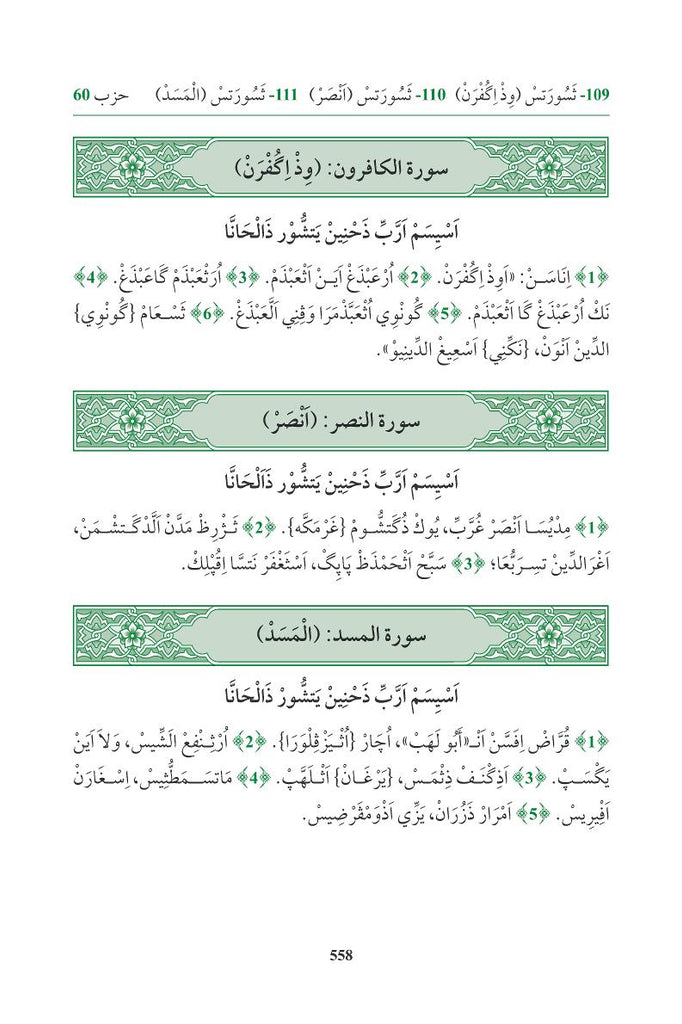 109- ثَسُورَتسْ (وِذْ اِگُفْرَنْ) 110- ثَسُورَتسْ (اَنْصَرْ) 111- ثَسُورَتسْ (الْمَسَدْ) حزب 60
سورة الكافرون: (وِذْ اِگُفْرَنْ)
اَسْيِسَمْ اَرَّبِّ ذَحْنِينْ يَتشُّوْر ذَالْحَانَّا
﴿1﴾ اِنَاسَـنْ: «اَوِذْ اِگُفْرَنْ. ﴿2﴾ اُرْعَبْدَغْ اَيَـنْ اَثْعَبْذَمْ. ﴿3﴾ اُرَثْعَبْذَمْ گَاعَبْدَغْ. ﴿4﴾
نَكْ اُرْعَبْدَغْ گَا اَثْعَبْذَمْ. ﴿5﴾ گُونْوِي اُثْعَبَّذْمَرَا وَقِنِي اَلَّعَبْدَغْ. ﴿6﴾ ثَسْـعَامْ {گُونْوِي}
الدِّينْ اَنْوَنْ، {نَكِّنِي} اَسْعِيغْ الدِّينِيوْ».
سورة النصر: (اَنْصَرْ)
اَسْيِسَمْ اَرَّبِّ ذَحْنِينْ يَتشُّوْر ذَاَلْحَانَّا
﴿1﴾ مِدْيُسَـا اَنْصَرْ غُرَّبِّ، يُوكْ ذُكَتشُّـومْ {غَرْ مَكَّه}. ﴿2﴾ ثَـزْرِظْ مَدَّنْ اَلَّدْگَـتْشْـمَنْ،
اَغْرَالدِّينْ تسِـرَبُّعَا؛ ﴿3﴾ سَبَّحْ اَثْحَمْذَظْ پَاپِگْ، اَسْتَغْفَرْ نَتسَّا اِقُپْلِكْ.
سورة المسد: (الْمَسَدْ)
اَسْيِسَمْ اَرَّبِّ ذَحْنِينْ يَتشُّورْ ذَالْحَانَّا
﴿1﴾ قُرَّاضْ اِفَسَّنْ اَنْـ«أَبُو لَهَبْ»، اُچَارْ {اُثْـيَزْڤِلْوَرَا}. ﴿2﴾ اُرْثِـنْفِعْ الشِّيسْ، وَلاَ اَيَنْ
يَگْسَـپْ. ﴿3﴾ اَذِكْنَـفْ ذِثْمَـسْ، {يَرْغَـانْ} اَثْـلَهَّپْ. ﴿4﴾ مَاتسَـمَطُّثِيسْ، اِسْـغَارَنْ
اَفِيرِيسْ. ﴿5﴾ اَمْرَارْ ذَزُرَانْ، يَزِّي اَذْوَمْقَرْضِيسْ.
558